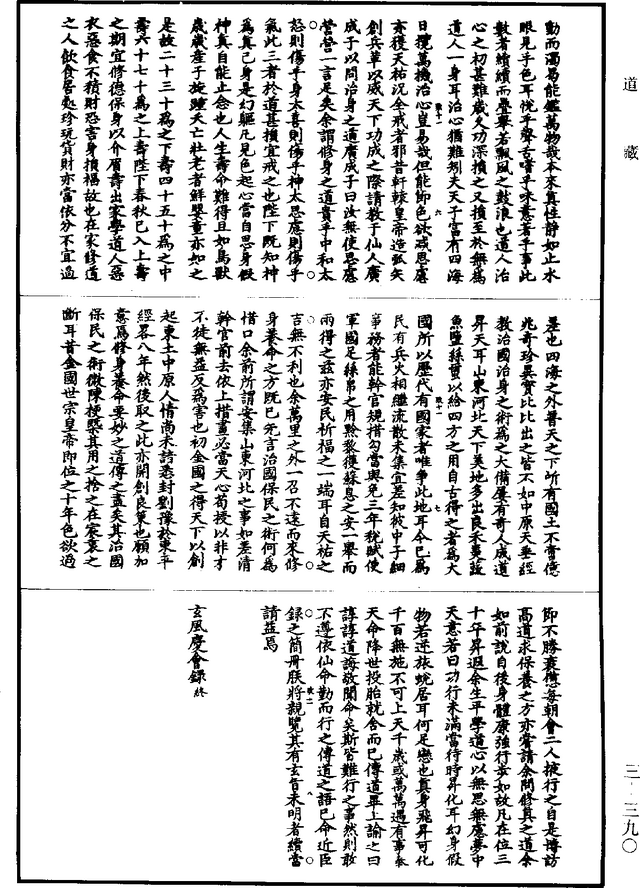 道藏
動而濁易能鑑萬物哉本來真性靜如止水
眼見乎色耳悅乎聲舌嗜乎味意著乎事此
數者續續而疊舉若飄風之鼓浪也道人治
心之初甚難歲久功深損之又損至於無為
道人一身耳治心猶難矧夫天子富有四海
日攬萬機治心豈易哉但能節色欲減思慮
亦獲天祐況全戒者邪昔軒轅皇帝造弧矢
創兵革以威天下功成之際請教于仙人廣
成子以問治身之道廣成子曰汝無使思慮
營營一言足矣余謂修身之道貴乎中和太
怒則傷乎身太喜則傷乎神太思慮則傷乎
氣此三者於道甚損宜戒之也陛下既知神
為真己身是幻軀凡見色起心當自思身假
神真自能止念也人生壽命難得且如鳥獸
歲歲產子旋踵夭亡壯老者鮮嬰童亦如之
是故二十三十為之下壽四十五十為之中
壽六十七十為之上壽陛下春秋已入上壽
之期宜修德保身以介眉壽出家學道人惡
衣惡食不積財恐害身損福故也在家修道
之人飲食居處珍玩貨財亦當依分不宜過
差也四海之外普天之下所有國土不啻億
兆奇珍異寶比比出之皆不如中原天垂經
教治國治身之術為之大備屢有奇人成道
昇天耳山東河北天下美地多出良禾美蔬
魚鹽絲蠶以給四方之用自古得之者為大
國所以歷代有國家者唯爭此地耳今已為
民有兵火相繼流散未集宜差知彼中子細
事務者能幹官規措勾當與免三年稅賦使
軍國足絲帛之用黔黎獲蘇息之安一舉而
兩得之茲亦安民祈福之一端耳自天祐之
吉無不利也余萬里之外一召不遠而來修
身養命之方既已先言治國保民之術何為
惜口余前所謂安集山東河北之事如差清
幹官前去依上措畫必當天心苟授以非才
不徒無益反為害也初金國之得天下以創
起東土中原人情尚未諳悉封劉豫於東平
經畧八年然後取之此亦開創良策也願加
意焉修身養命要妙之道傳之盡矣其治國
保民之術微陳梗槩其用之捨之在宸衷之
斷耳昔金國世宗皇帝即位之十年色欲過
節不勝衰憊每朝會二人掖行之自是博訪
高道求保養之方亦嘗請余問修真之道余
如前說自後身體康強行步如故凡在位三
十年昇遐余生平學道心以無思無慮夢中
天意若曰功行未滿當待時昇化耳幻身假
物若逆旅蛻居耳何足戀也真身飛昇可化
千百無施不可上天千歲或萬萬遇有事奉
天命降世投胎就舍而已傳道畢上諭之曰
諄諄道誨敬聞命矣斯皆難行之事然則敢
不遵依仙命勤而行之傳道之語已命近臣
錄之簡冊朕將親覽其有玄旨未明者續當
請益焉
玄風慶會錄終
三-三九〇